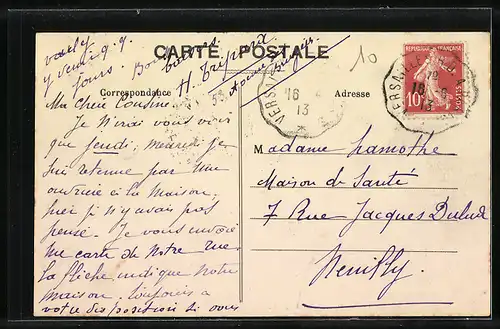 vacly
y venir q.q.
jours. Bons
baisers
H.
CARTE POSTALE
Correspondance
Adresse
10
RÉPUBLIQUE FRANÇAISE
10
POSTES
VERSAILLES
16
13
Ma chère Cousine
Je n'irai vous voir
que jeudi,
suis retenue par une
ouvrière à la maison.
hier je n'y avais pas
pensé. Je vous envoie
une carte de notre rue
la flèche indique notre
maison toujours à
votre disposition si vous
Madame Lamothe
Maison de Santé
7 Rue Jacques Dulud
Neuilly.